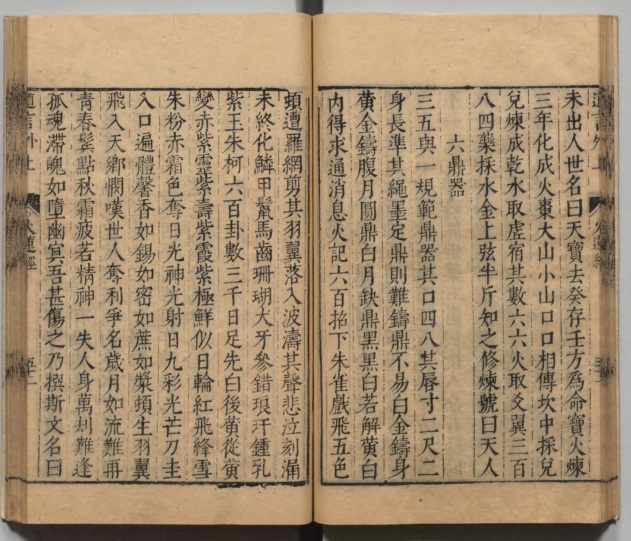 未出人世名曰天寶去癸存壬方為命寶火煉
三年化成火棗大山小山口口相傳坎中採兌
兌煉成乾水取虛宿其數六六火取爻翼三百
八四藥採水金上弦半斤知之修煉號曰天人
六鼎器
三五與一規範鼎器其口四八其唇寸二尺二
身長準其繩墨定鼎則難鑄鼎不易白金鑄身
黃金鑄腹月圓鼎白月缺鼎黑黑白若解黃白
內得求通消息火記六百招下朱雀戲飛五色
頭遭羅網剪其羽翼落入波濤其聲悲泣刻漏
未終化鱗甲鬣馬齒珊瑚犬牙參錯琅玕鍾乳
紫玉朱柯六百卦數三千日足先白後黃從黃
變赤紫靈紫壽紫霞紫極鮮似日輪紅飛絳雪
朱粉赤霜色奪日光神光射日九彩光芒刀圭
入口遍體馨香如錫如密如蔗如漿頭生羽翼
飛入天鄉憫嘆世人奪利爭名歲月如流難再
青春鬓點秋霜疲若精神一失人身萬刼難逢
孤魂滯魄如墮幽冥吾甚傷之乃撰斯文名曰
道言外 上
火蓮經
五十二